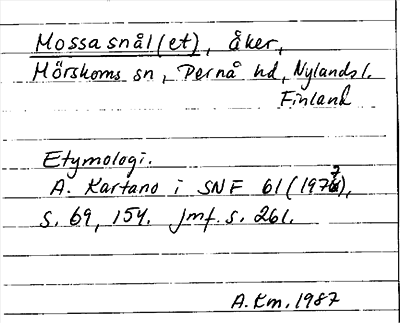 Mossasnål(et), åker,
Mörskoms sn, Pernå hd, Nylands l.
Finland
Etymologi.
A. Kartano i SNF 61 (1977),
s. 69, 154. Jmf. s. 261.
A.Km. 1987